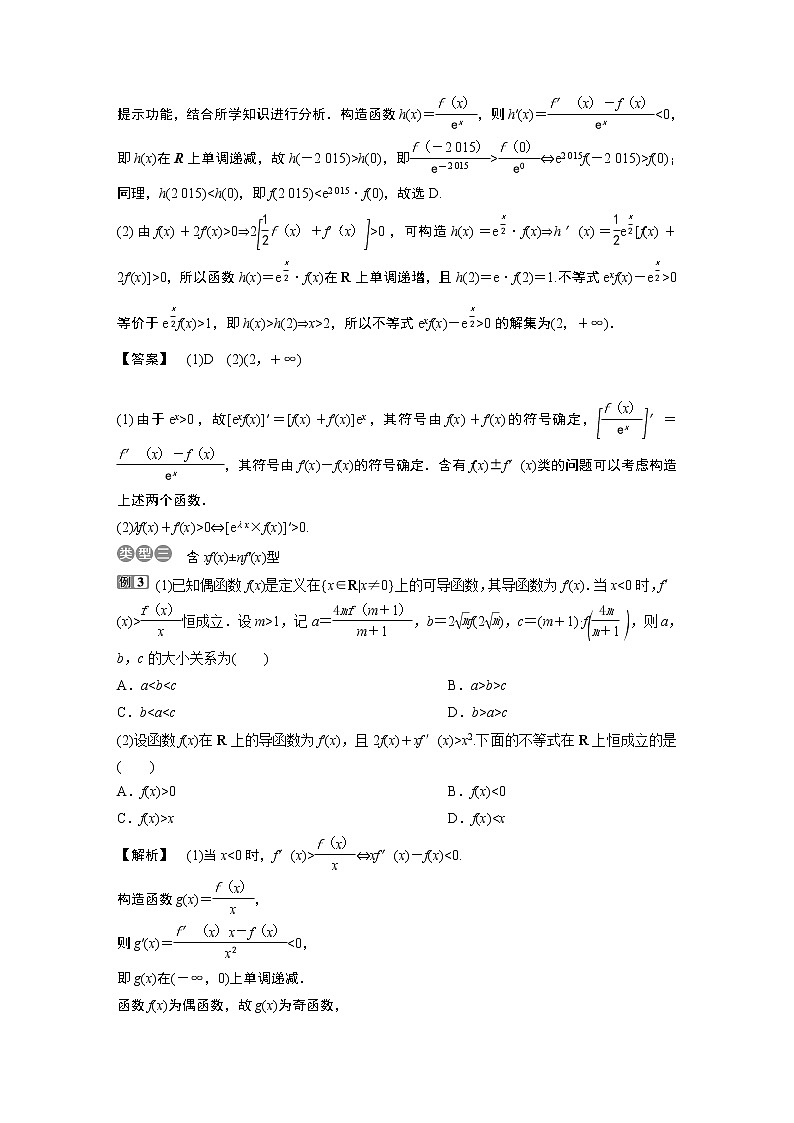 提示功能，结合所学知识进行分析．构造函数 h(x)＝f（x）/eˣ，则 h′(x)＝f′（x）－f（x）/eˣ<0，
即 h(x)在 R 上单调递减，故 h(－2 015)>h(0)，即f（－2 015）/e⁻²⁰¹⁵>f（0）/e⁰⇔e²⁰¹⁵f(－2 015)>f(0)；
同理，h(2 015)<h(0)，即 f(2 015)<e²⁰¹⁵·f(0)，故选 D.
(2)由 f(x)＋2f′(x)>0⇒2[1/2 f（x）＋f′（x）]>0，可构造 h(x)＝e^(x/2)·f(x)⇒h′(x)＝1/2e^(x/2)[f(x)＋
2f′(x)]>0，所以函数 h(x)＝e^(x/2)·f(x)在 R 上单调递增，且 h(2)＝e·f(2)＝1.不等式 eˣf(x)－e^(x/2)>0
等价于 e^(x/2)f(x)>1，即 h(x)>h(2)⇒x>2，所以不等式 eˣf(x)－e^(x/2)>0 的解集为(2，＋∞)．
【答案】 (1)D (2)(2，＋∞)
(1)由于 eˣ>0，故[eˣf(x)]′＝[f(x)＋f′(x)]eˣ，其符号由 f(x)＋f′(x)的符号确定，[f（x）/eˣ]′＝
f′（x）－f（x）/eˣ，其符号由 f′(x)－f(x)的符号确定．含有 f(x)±f′(x)类的问题可以考虑构造
上述两个函数．
(2)λf(x)＋f′(x)>0⇔[e^(λx)×f(x)]′>0.
类型三 含 xf(x)±nf′(x)型
例3 (1)已知偶函数 f(x)是定义在{x∈R|x≠0}上的可导函数，其导函数为 f′(x)．当 x<0 时，f′
(x)>f（x）/x恒成立．设 m>1，记 a＝4mf（m＋1）/m＋1，b＝2√m f(2√m)，c＝(m＋1)·f(4m/m＋1)，则 a，
b，c 的大小关系为( )
A．a<b<c B．a>b>c
C．b<a<c D．b>a>c
(2)设函数 f(x)在 R 上的导函数为 f′(x)，且 2f(x)＋xf′(x)>x².下面的不等式在 R 上恒成立的是
( )
A．f(x)>0 B．f(x)<0
C．f(x)>x D．f(x)<x
【解析】 (1)当 x<0 时，f′(x)>f（x）/x⇔xf′(x)－f(x)<0.
构造函数 g(x)＝f（x）/x，
则 g′(x)＝f′（x）x－f（x）/x²<0，
即 g(x)在(－∞，0)上单调递减．
函数 f(x)为偶函数，故 g(x)为奇函数，